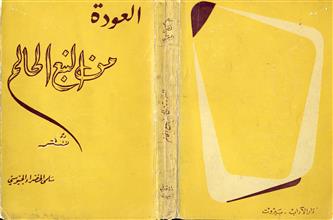 العودة
من النبع الحالم
شعر
سلمى الخضراء الجيوسي
دار الآداب - بيروت